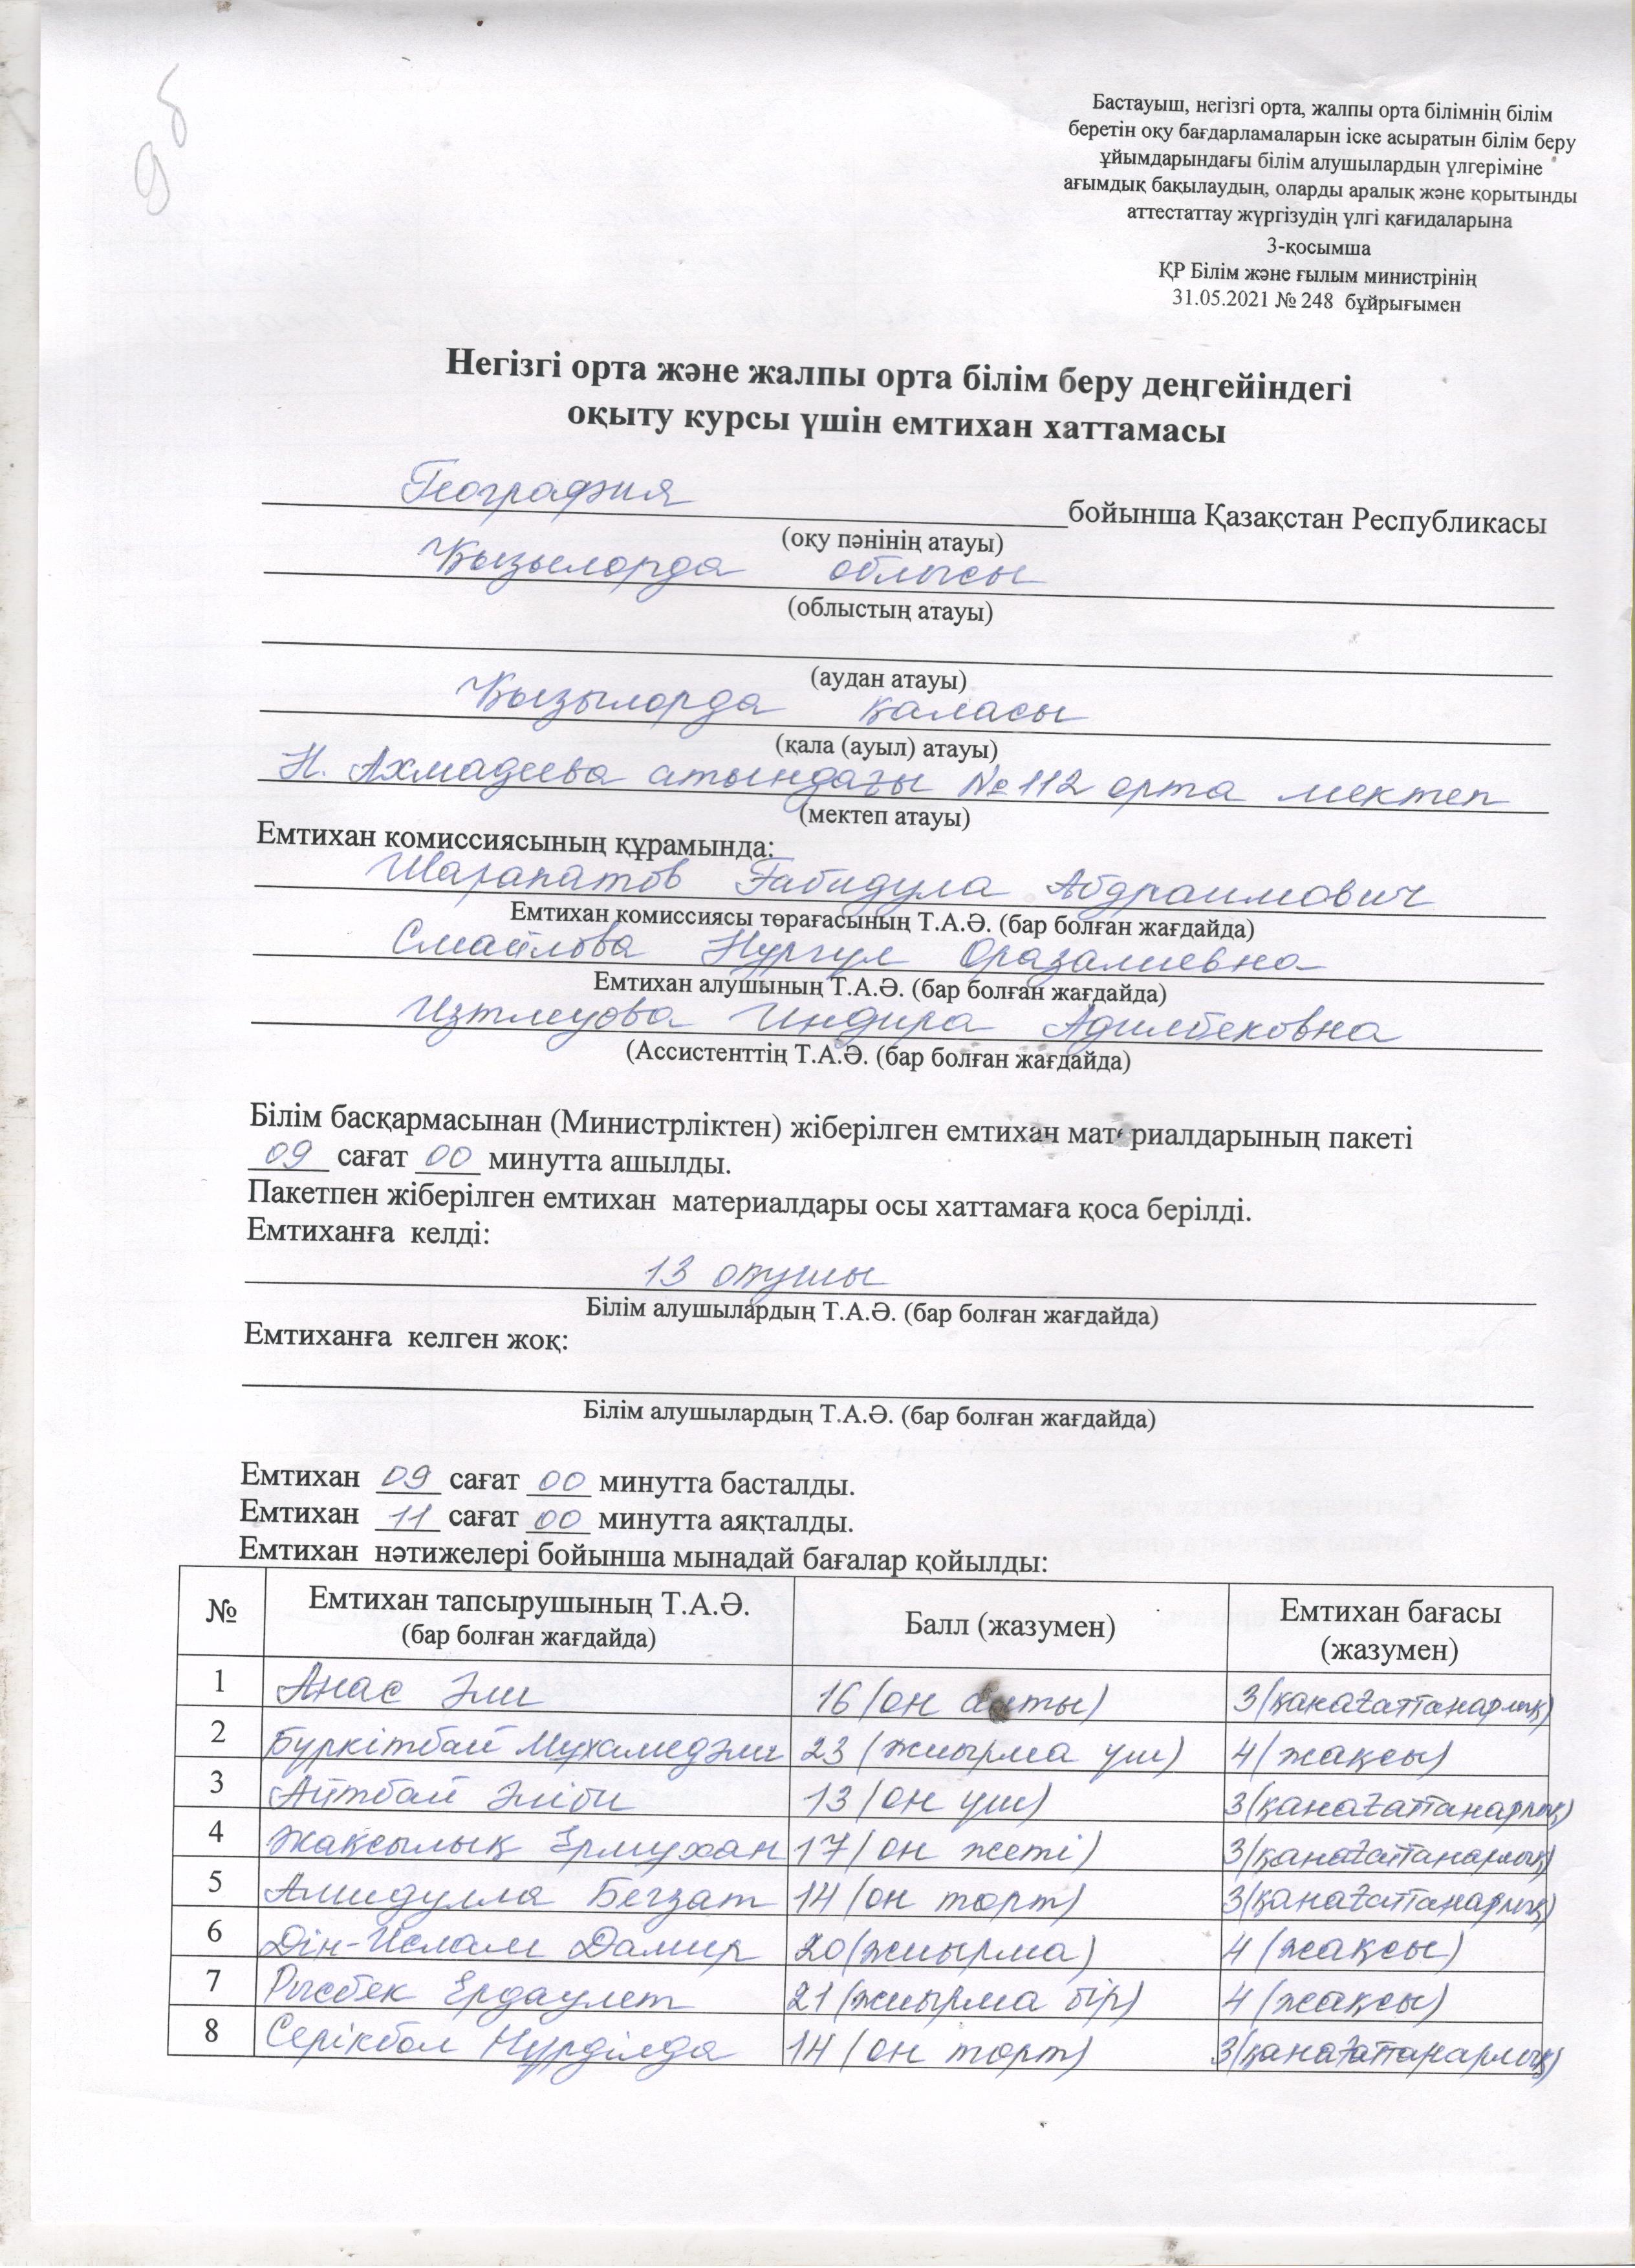 9б
Бастауыш, негізгі орта, жалпы орта білімнің білім
беретін оқу бағдарламаларын іске асыратын білім беру
ұйымдарындағы білім алушылардың үлгеріміне
ағымдық бақылаудың, оларды аралық және қорытынды
аттестаттау жүргізудің үлгі қағидаларына
3-қосымша
ҚР Білім және ғылым министрінің
31.05.2021 № 248 бұйрығымен
Негізгі орта және жалпы орта білім беру деңгейіндегі
оқыту курсы үшін емтихан хаттамасы
География бойынша Қазақстан Республикасы
(оқу пәнінің атауы)
Қызылорда облысы
(облыстың атауы)
(аудан атауы)
Қызылорда қаласы
(қала (ауыл) атауы)
Н. Ахмадеева атындағы №112 орта мектеп
(мектеп атауы)
Емтихан комиссиясының құрамында:
Шарапатов Ғабидула Абдраимович
Емтихан комиссиясы төрағасының Т.А.Ә. (бар болған жағдайда)
Смайлова Нургул Оразалиевна
Емтихан алушының Т.А.Ә. (бар болған жағдайда)
Изтлеуова Индира Адилбековна
(Ассистенттің Т.А.Ә. (бар болған жағдайда)
Білім басқармасынан (Министрліктен) жіберілген емтихан материалдарының пакеті
09 сағат 00 минутта ашылды.
Пакетпен жіберілген емтихан материалдары осы хаттамаға қоса берілді.
Емтиханға келді:
13 оқушы
Білім алушылардың Т.А.Ә. (бар болған жағдайда)
Емтиханға келген жоқ:
Білім алушылардың Т.А.Ә. (бар болған жағдайда)
Емтихан 09 сағат 00 минутта басталды.
Емтихан 11 сағат 00 минутта аяқталды.
Емтихан нәтижелері бойынша мынадай бағалар қойылды:
№ Емтихан тапсырушының Т.А.Ә. (бар болған жағдайда) Балл (жазумен) Емтихан бағасы (жазумен)
1 Анас Әли 16 (он алты) 3 (қанағаттанарлық)
2 Бүркітбай Мухамедәли 23 (жиырма үш) 4 (жақсы)
3 Айтбай Әліби 13 (он үш) 3 (қанағаттанарлық)
4 Жақсылық Ермухан 17 (он жеті) 3 (қанағаттанарлық)
5 Амидулла Бегзат 14 (он төрт) 3 (қанағаттанарлық)
6 Дін-Ислам Дамир 20 (жиырма) 4 (жақсы)
7 Рысбек Ердаулет 21 (жиырма бір) 4 (жақсы)
8 Серікбол Нұрділда 14 (он төрт) 3 (қанағаттанарлық)